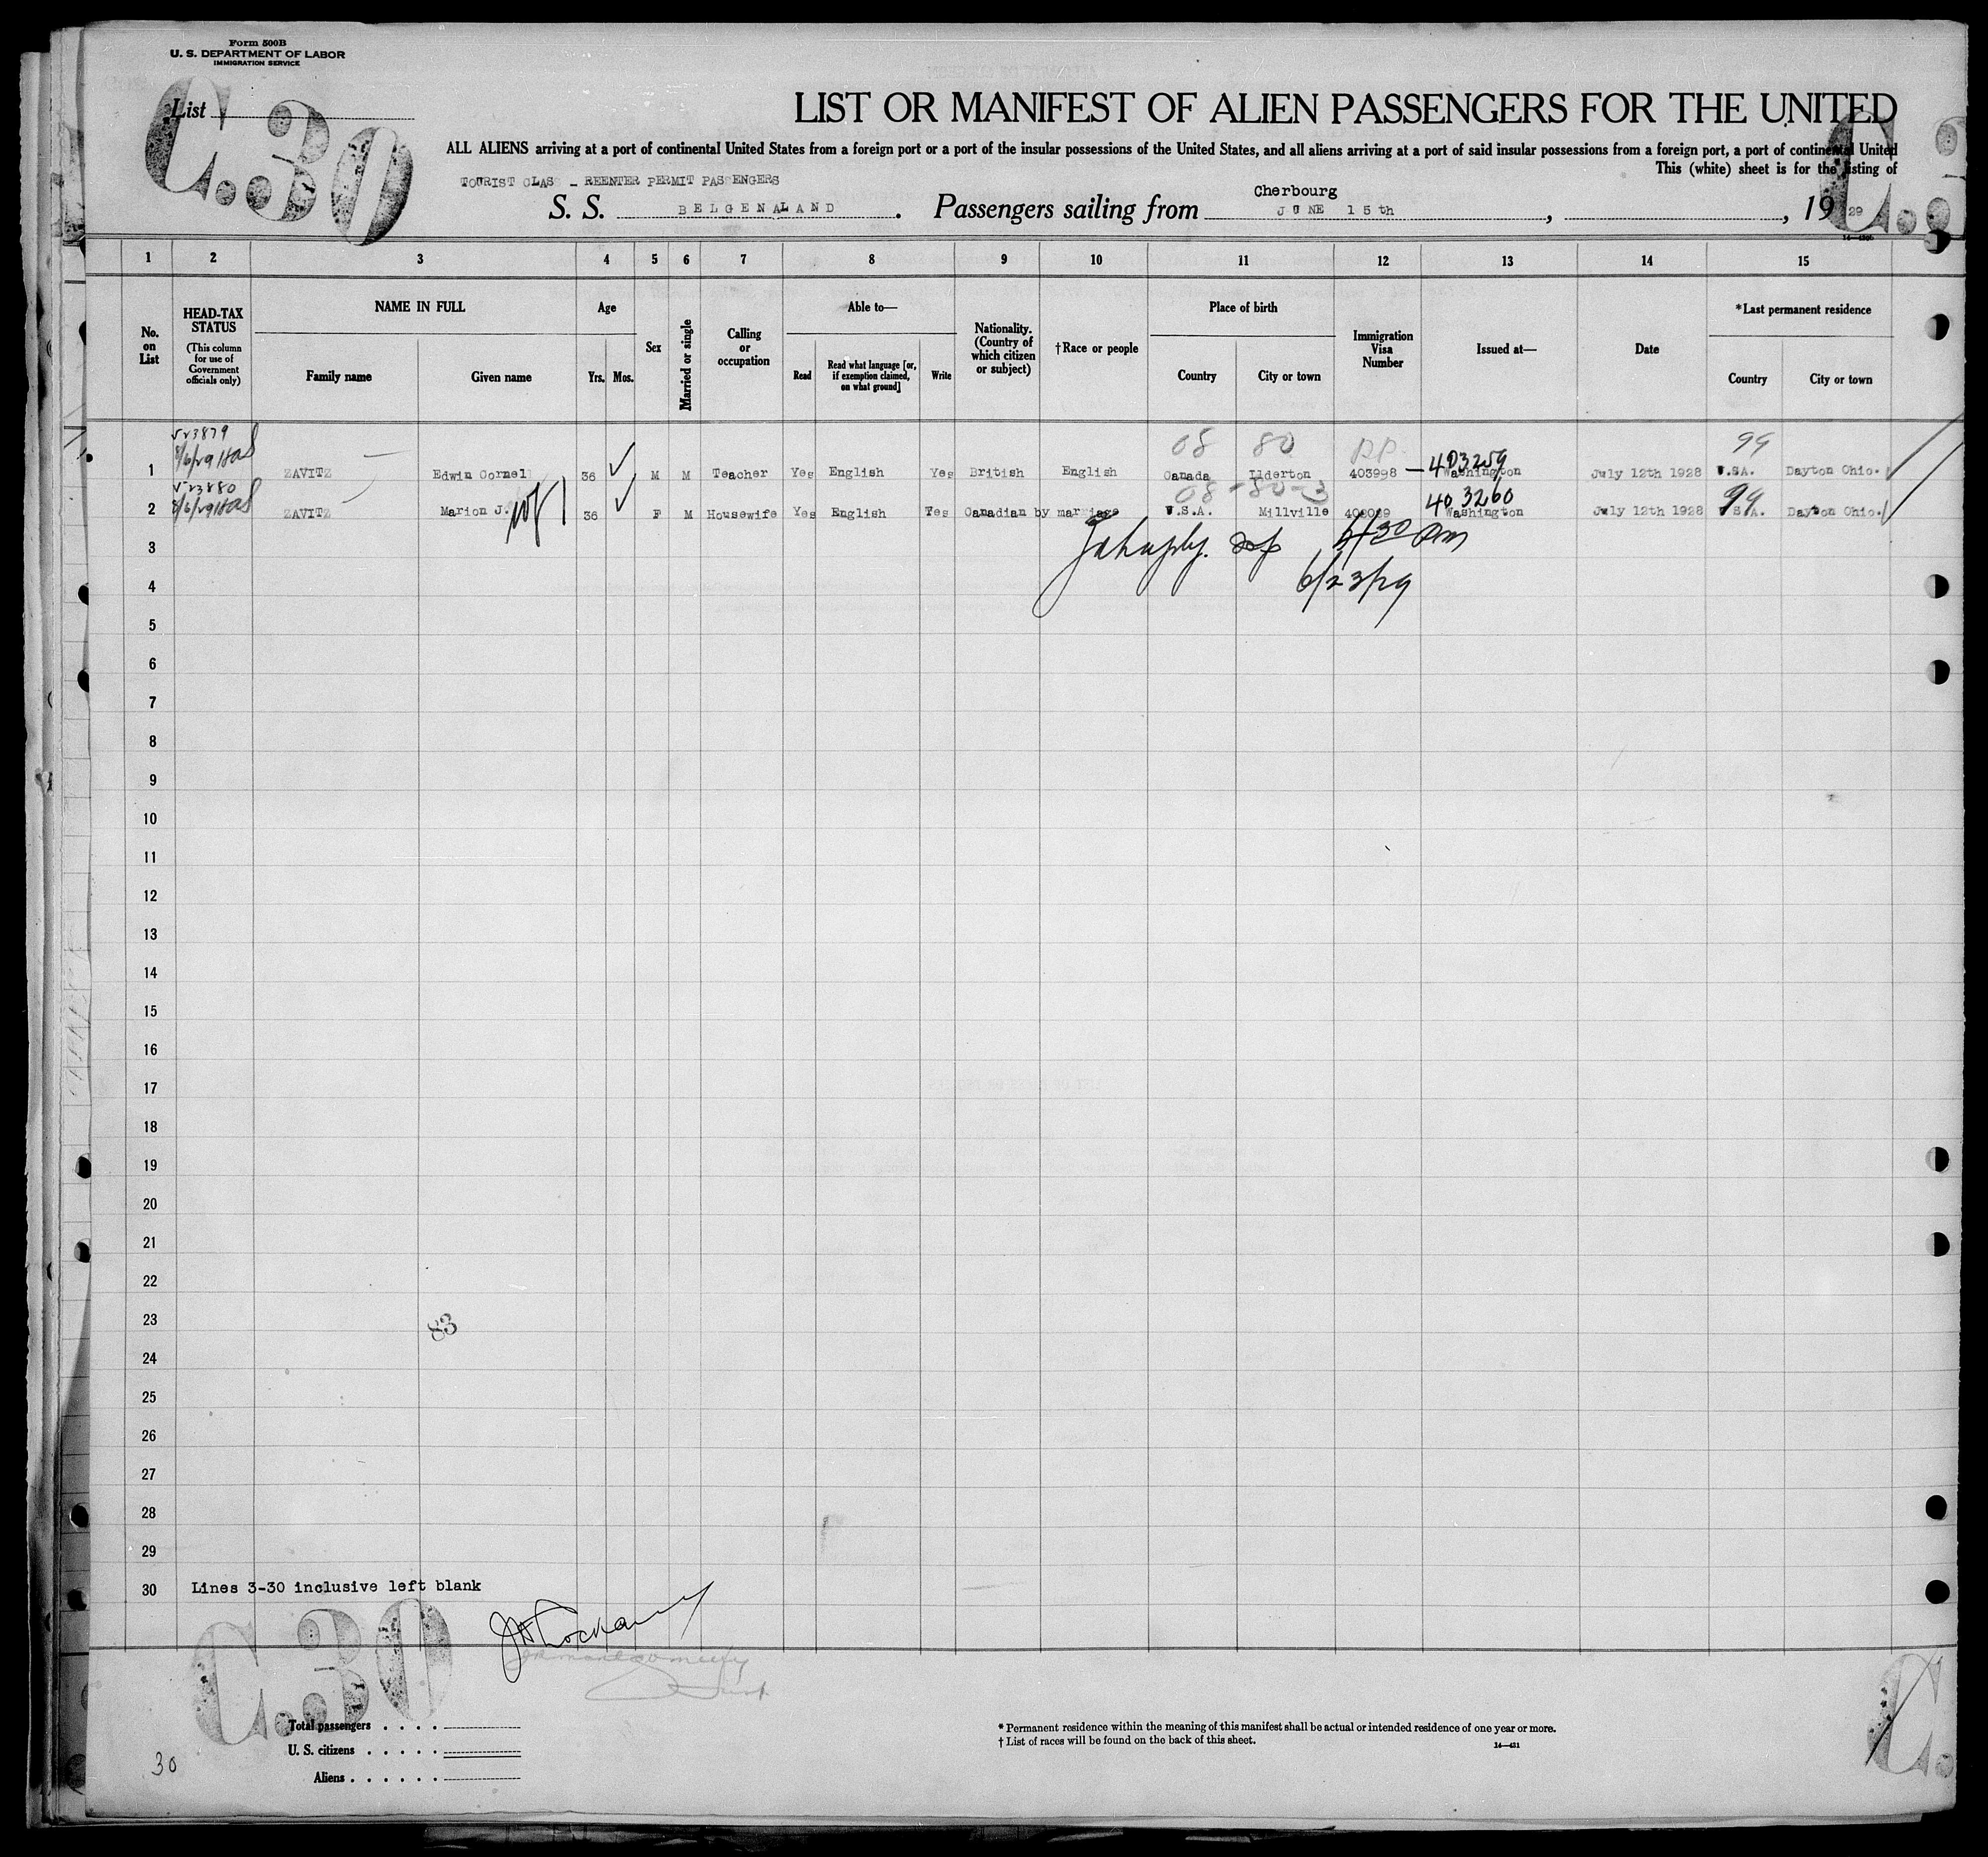 Form 500B
U. S. DEPARTMENT OF LABOR
IMMIGRATION SERVICE
List
C.30
LIST OR MANIFEST OF ALIEN PASSENGERS FOR THE UNITED
ALL ALIENS arriving at a port of continental United States from a foreign port or a port of the insular possessions of the United States, and all aliens arriving at a port of said insular possessions from a foreign port, a port of continental United
This (white) sheet is for the listing of
TOURIST CLASS – REENTER PERMIT PASSENGERS
S. S. BELGENALAND. Passengers sailing from Cherbourg JUNE 15th, , 1929
1 2 3 4 5 6 7 8 9 10 11 12 13 14 15
No. on List
HEAD-TAX STATUS
(This column for use of Government officials only)
NAME IN FULL
Family name Given name
Age
Yrs. Mos.
Sex
Married or single
Calling or occupation
Able to—
Read
Read what language [or, if exemption claimed, on what ground]
Write
Nationality. (Country of which citizen or subject)
†Race or people
Place of birth
Country City or town
Immigration Visa Number
Issued at—
Date
*Last permanent residence
Country City or town
08 80 99
403259
1 ZAVITZ Edwin Cornel 36 M M Teacher Yes English Yes British English Canada Ilderton 403998 Washington July 12th 1928 U.SA. Dayton Ohio.
08 -80-3 403260 99
2 ZAVITZ Marion J. 36 F M Housewife Yes English Yes Canadian by marriage U.S.A. Millville Washington July 12th 1928 U.S.A. Dayton Ohio.
3
6/23/29
4
5
6
7
8
9
10
11
12
13
14
15
16
17
18
19
20
21
22
23
83
24
25
26
27
28
29
30 Lines 3-30 inclusive left blank
C.30
C.
Total passengers
U. S. citizens
Aliens
30
* Permanent residence within the meaning of this manifest shall be actual or intended residence of one year or more.
† List of races will be found on the back of this sheet.
14—431